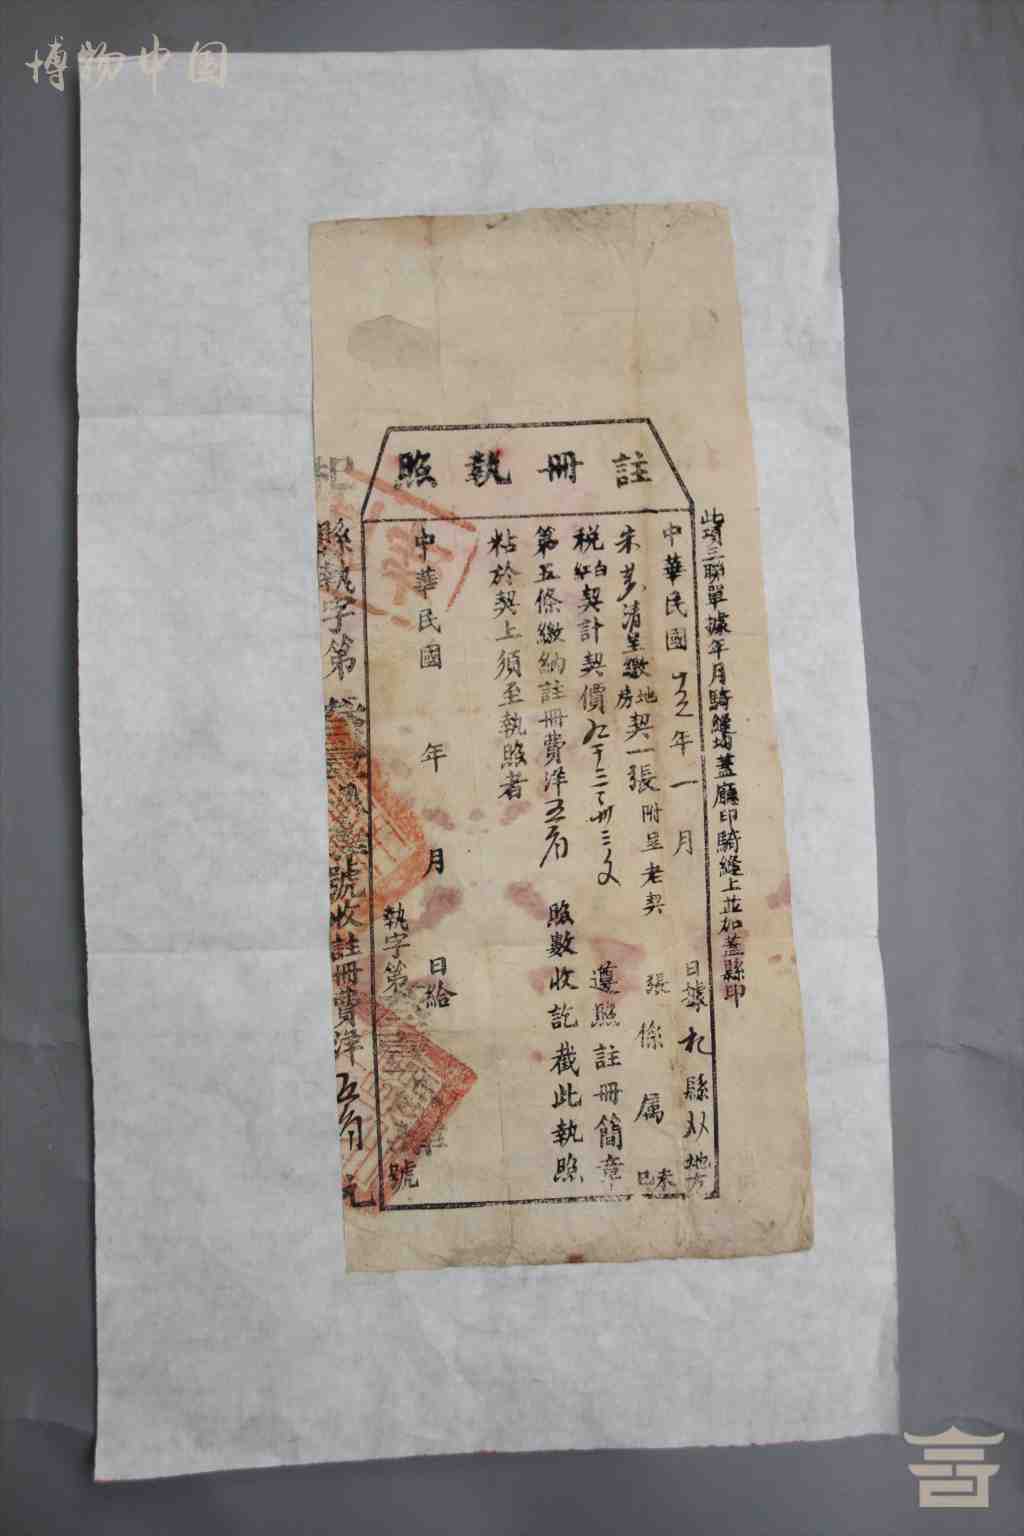 博物中国
註冊執照
此項三聯單據年月騎縫均蓋廳印騎縫上並加蓋縣印
中華民國 年一月 日據杞縣 地方
朱 清呈繳地房契一張附呈老契 張係屬未已
稅白紅契計契價 千三 卅三文 遵照註冊簡章
第五條繳納註冊費洋五角 照數收訖截此執照
粘於契上須至執照者
中華民國 年 月 日給
執字第 號
杞縣執字第 號收註冊費洋五角 元